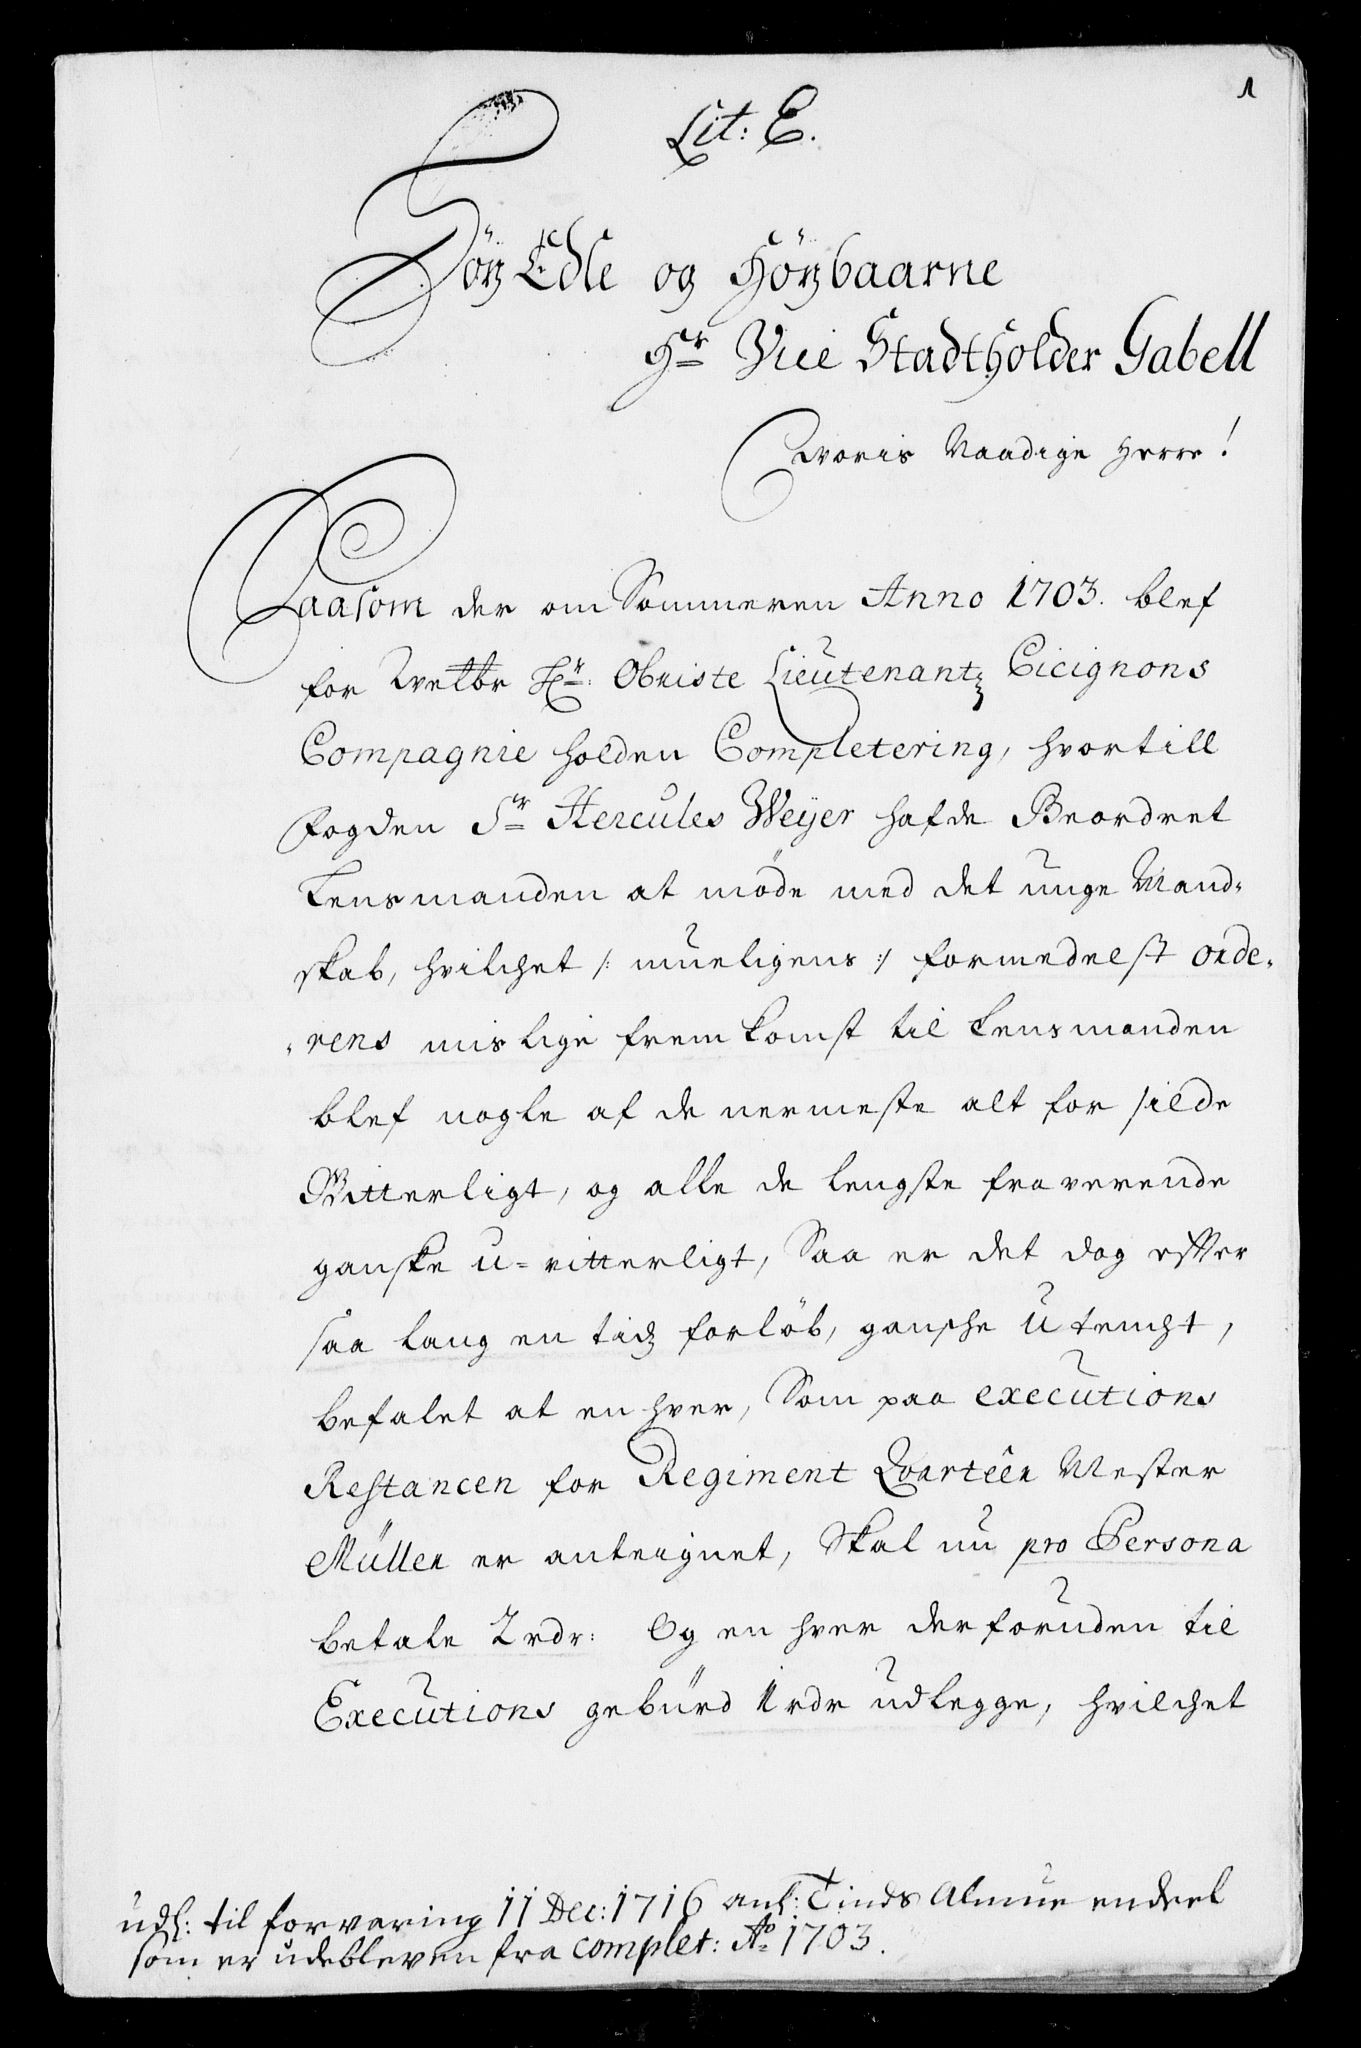 1
Lit: E.
Höy Edle og Höybaarne
Hr Vice Stadtholder Gabell
Gunstig Naadige Herre!
Saasom der om Sommeren Anno 1703. blef
for Velbr Hr: Obriste Lieutenant Cicignons
Compagnie holden Completering, hvortill
Fogden Sr Hercules Weyer hafde Beordret
Lensmanden at møde med det unge Mand-
skab, hvilchet /: mueligens :/ formedelst orde-
-rens mislige fremkomst til Lensmanden
blef nogle af de nermeste alt for silde
Vitterligt, og alle de lengste fraverende
ganske u-vitterligt, Saa er det dog efter
saa lang en tid forløb, gansche Utencht,
befalet at en hver, Som paa executions
Restancen for Regiment Qvarteer Mester
Müller er anteignet, Skal nu pro Persona
betale 2 rdr: Og en hver derforuden til
Executions gebürd 1 rdr udlegge, hvilchet
udl: til forvaring 11 Dec: 1716 anl: Tinds Almue endeel
som er udebleven fra complet: Ao 1703.